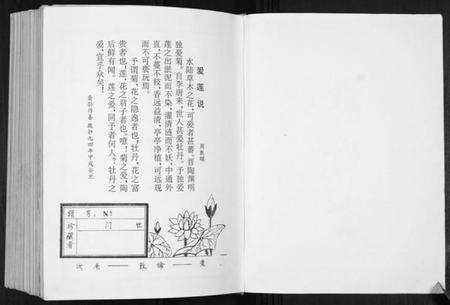 爱莲说
周敦颐
水陆草木之花,可爱者甚蕃。晋陶渊明
独爱菊。自李唐来,世人甚爱牡丹。予独爱
莲之出淤泥而不染,濯清涟而不妖,中通外
直,不蔓不枝,香远益清,亭亭净植,可远观
而不可亵玩焉。
予谓菊,花之隐逸者也;牡丹,花之富
贵者也;莲,花之君子者也。噫!菊之爱,陶
后鲜有闻。莲之爱,同于者何人?牡丹之
爱,宜乎众矣!
谱号:No
门 世
珍藏者